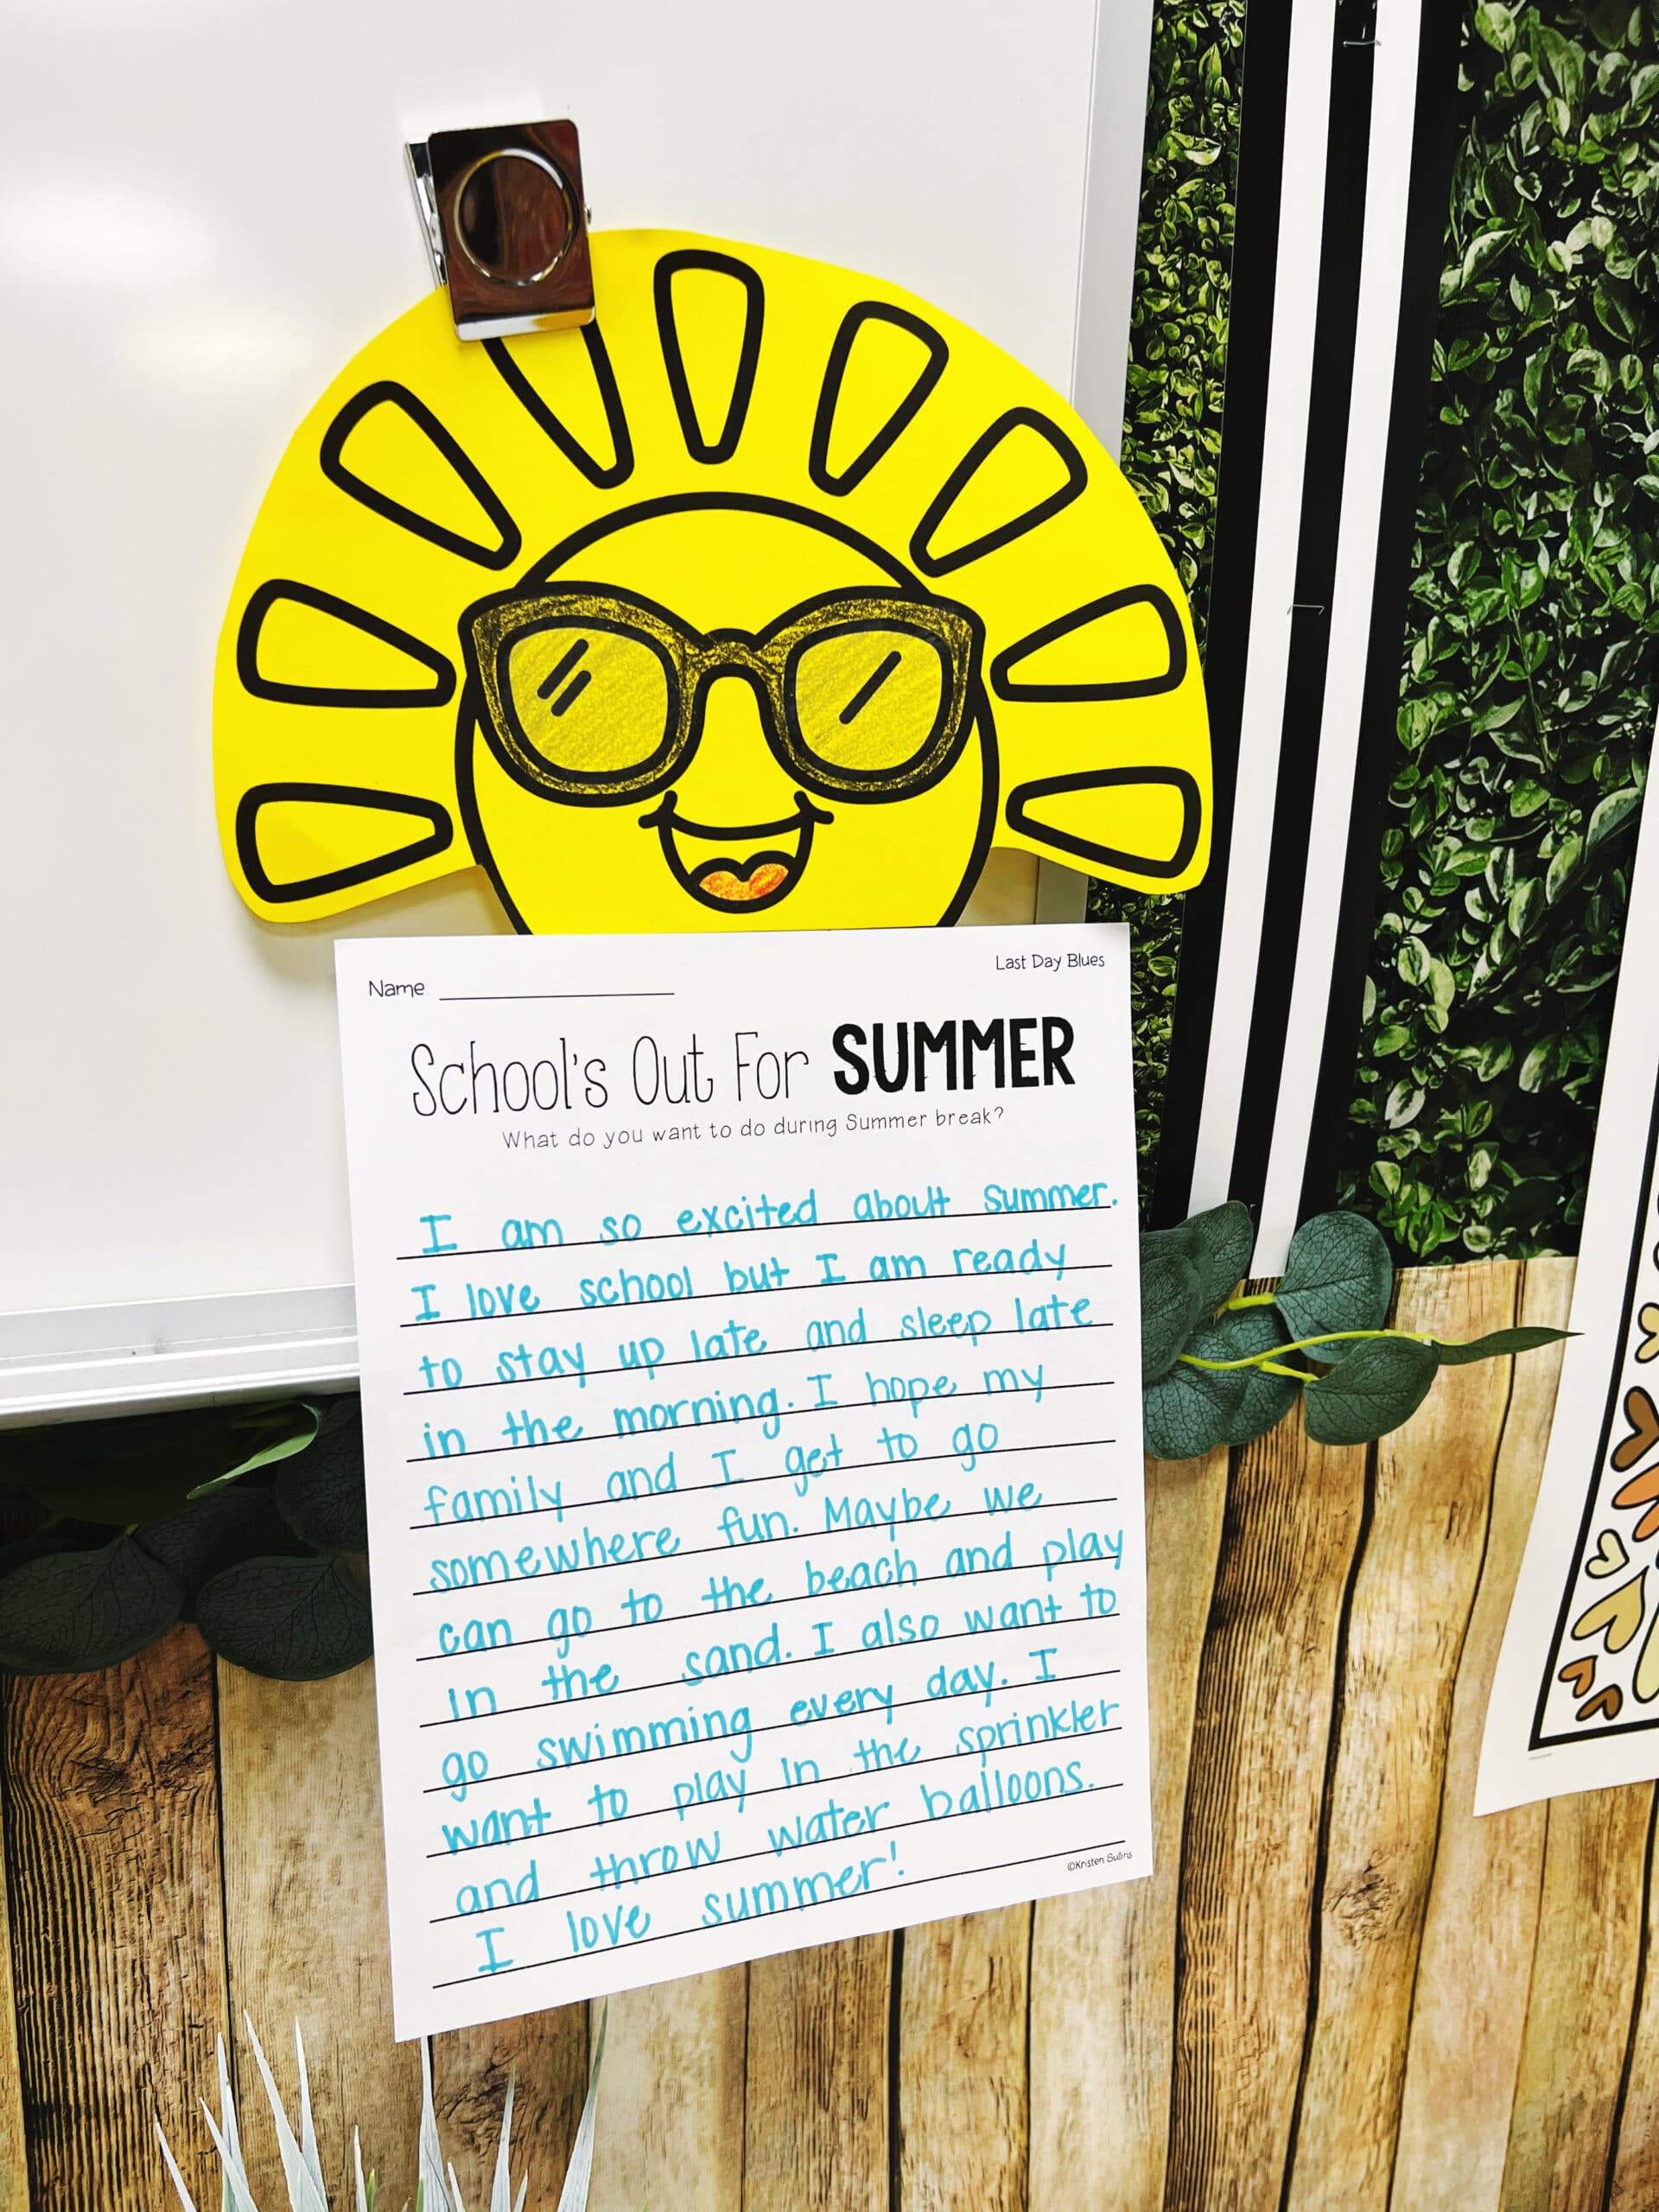 Last Day Blues
Name
School's Out For SUMMER
What do you want to do during Summer break?
I am so excited about summer.
I love school but I am ready
to stay up late and sleep late
in the morning. I hope my
family and I get to go
somewhere fun. Maybe we
can go to the beach and play
in the sand. I also want to
go swimming every day. I
want to play in the sprinkler
and throw water balloons.
I love summer!
©Kristen Sullins